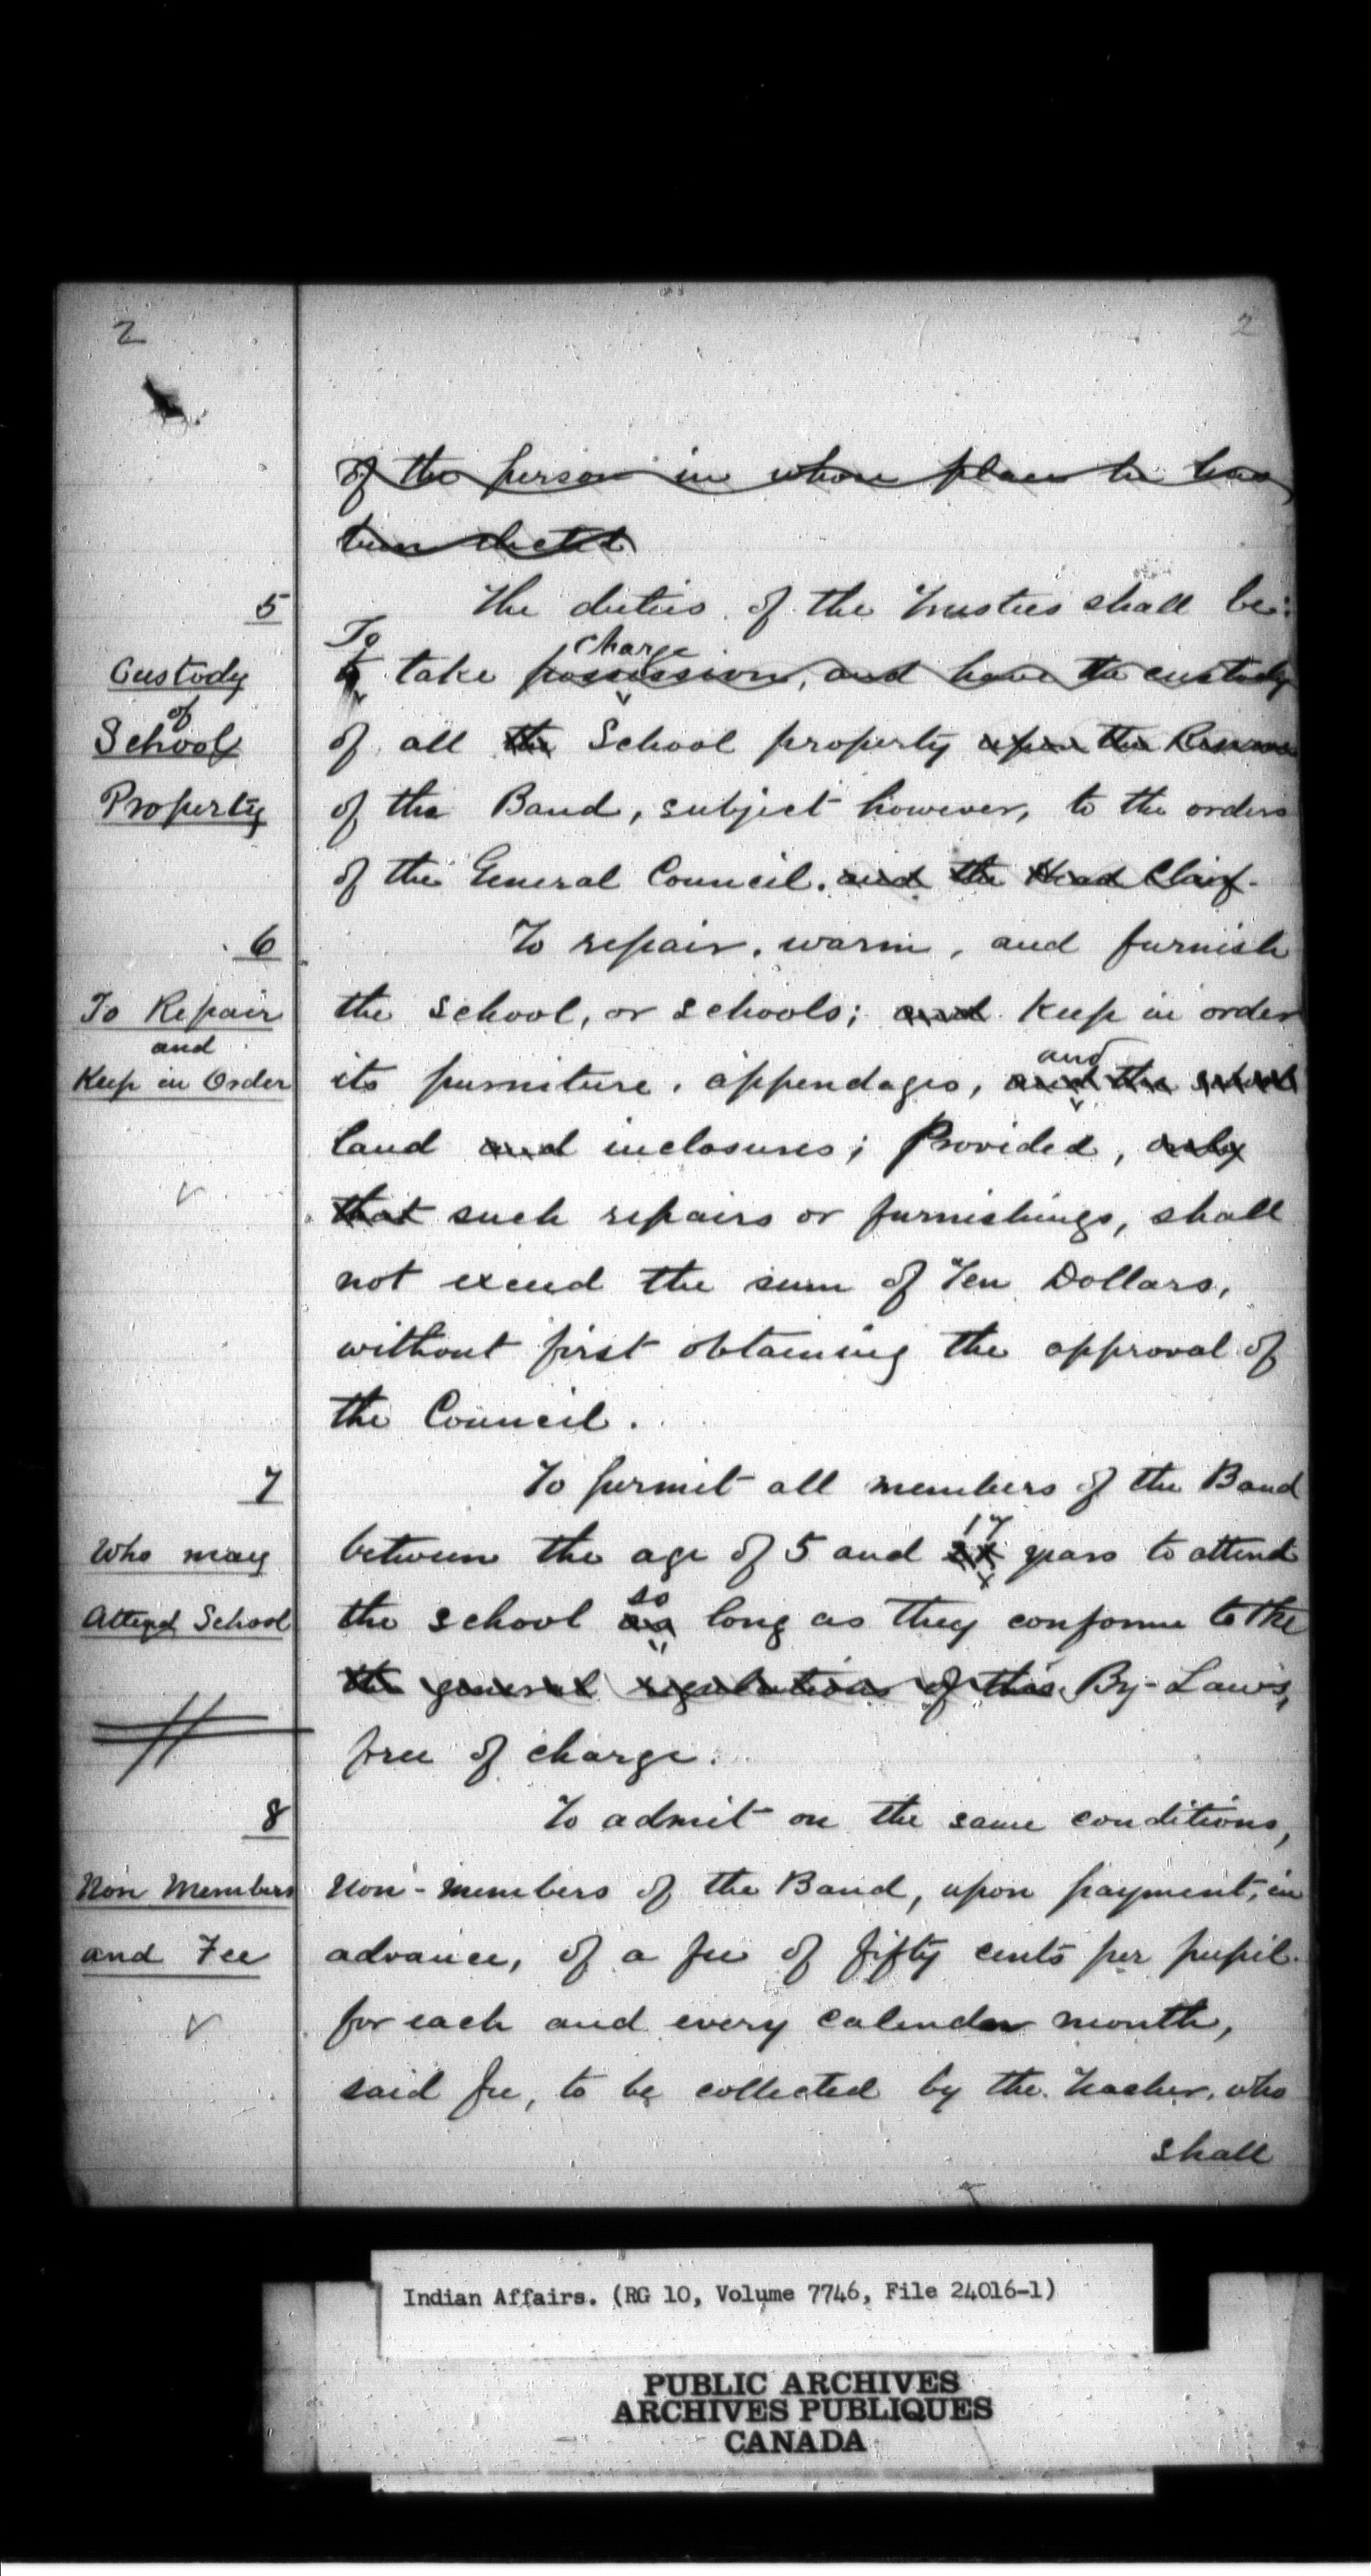 2
2
of the person in whose place he has
been elected
5
The duties of the Trustees shall be:
To charge
Custody
to take possession, and have the custody
of
School
of all the School property upon the Reserve
Property
of the Band, subject however, to the orders
of the General Council. and the Head Chief.
6
To repair, warm, and furnish
To Repair
the school, or schools; and keep in order
and
and
Keep in Order
its furniture, appendages, and the school
land and inclosures; Provided, only
that such repairs or furnishings, shall
not exceed the sum of Ten Dollars,
without first obtaining the approval of
the Council.
7
To permit all members of the Band
17
Who may
between the age of 5 and 21 years to attend
so
Attend School
the school as long as they conform to the
the general regulations of this By-Laws,
free of charge.
8
To admit on the same conditions,
Non Members
Non-members of the Band, upon payment, in
and Fee
advance, of a fee of fifty cents per pupil
for each and every calendar month,
said fee, to be collected by the Teacher, who
shall
Indian Affairs. (RG 10, Volume 7746, File 24016-1)
PUBLIC ARCHIVES
ARCHIVES PUBLIQUES
CANADA